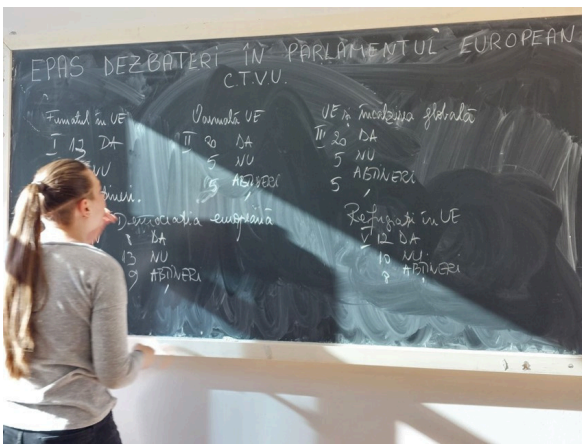 EPAS DEZBATERI ÎN PARLAMENTUL EUROPEAN
C.T.V.U.
Fumatul în UE
I 13 DA
NU
Vamală UE
II 20 DA
5 NU
5 ABȚINERI
UE și încălzirea globală
III 20 DA
5 NU
5 ABȚINERI
Democrația europeană
8 DA
13 NU
9 ABȚINERI
Refugiați în UE
V 12 DA
10 NU
8 ABȚINERI